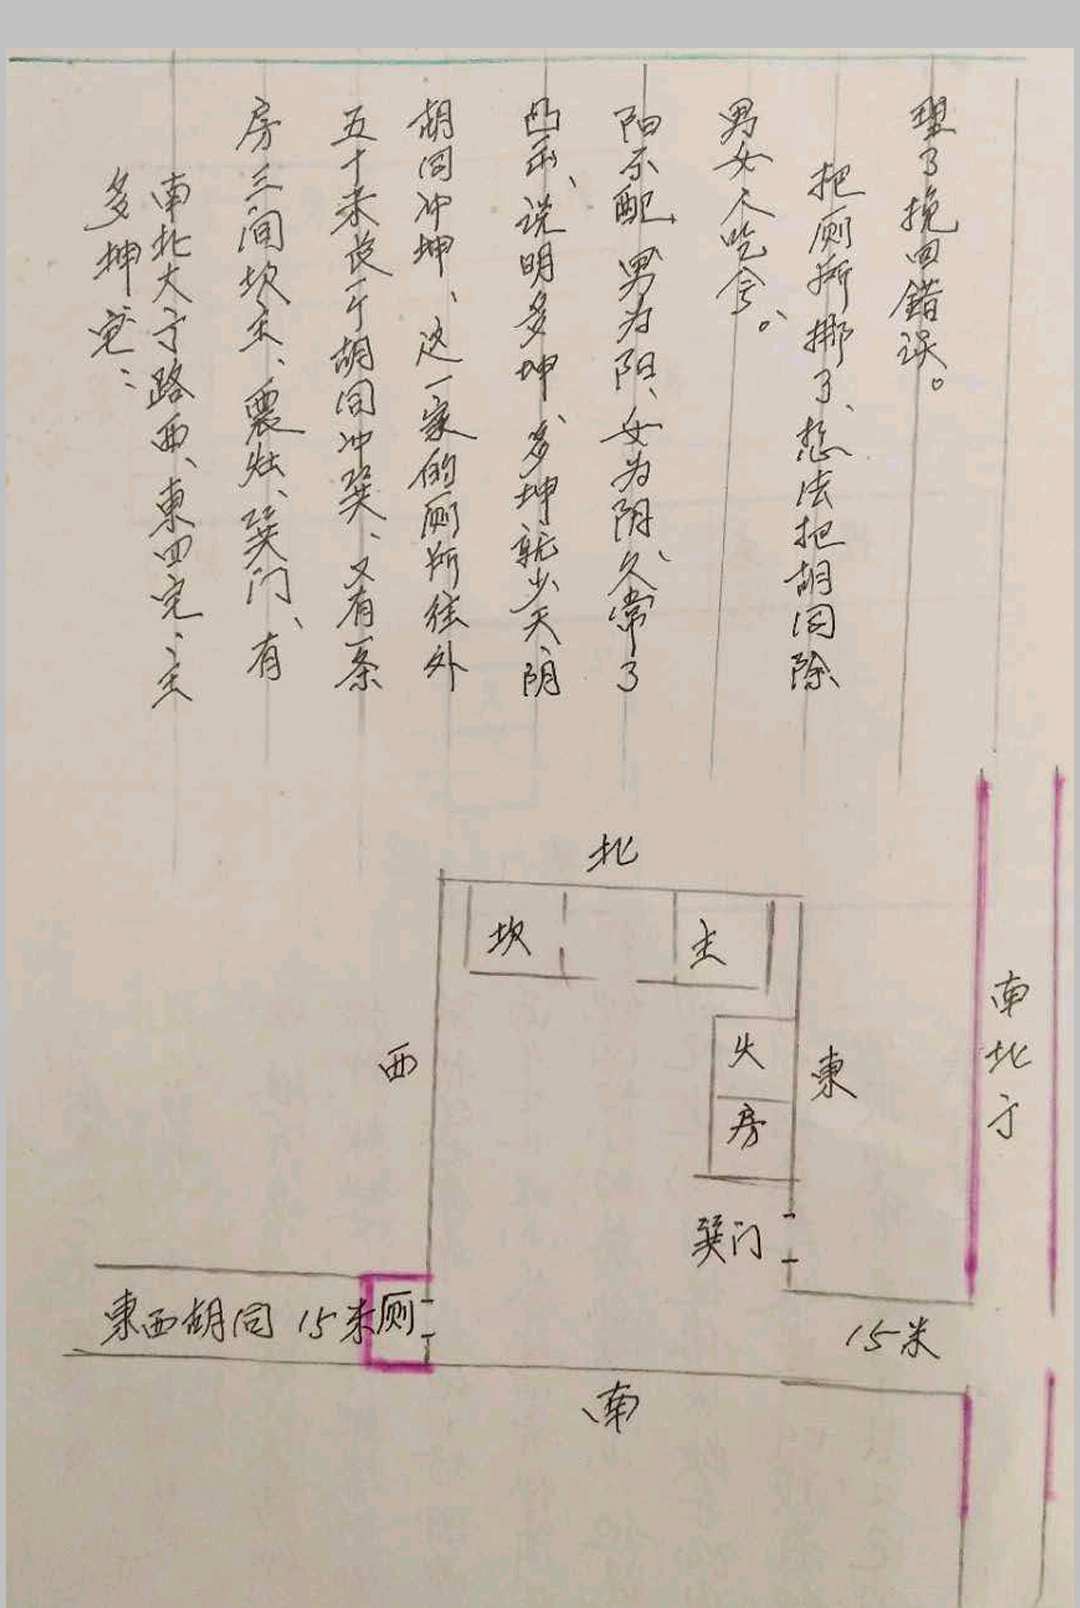 多坤宅：
南北大亍路西、東四宅、主
房三间坎主、震灶、巽门、有
五十米长一亍胡同冲巽、又有一条
胡同冲坤、这一家的厕所往外
凸出、说明多坤、多坤就少天阴
阳不配、男为阳、女为阴、久常了
男女不吃合。
把厕所挪了、想法把胡同除
理了挽回错误。
北
坎
主
西
火房
東
南北亍
巽门
東西胡同 15米
厕
15米
南